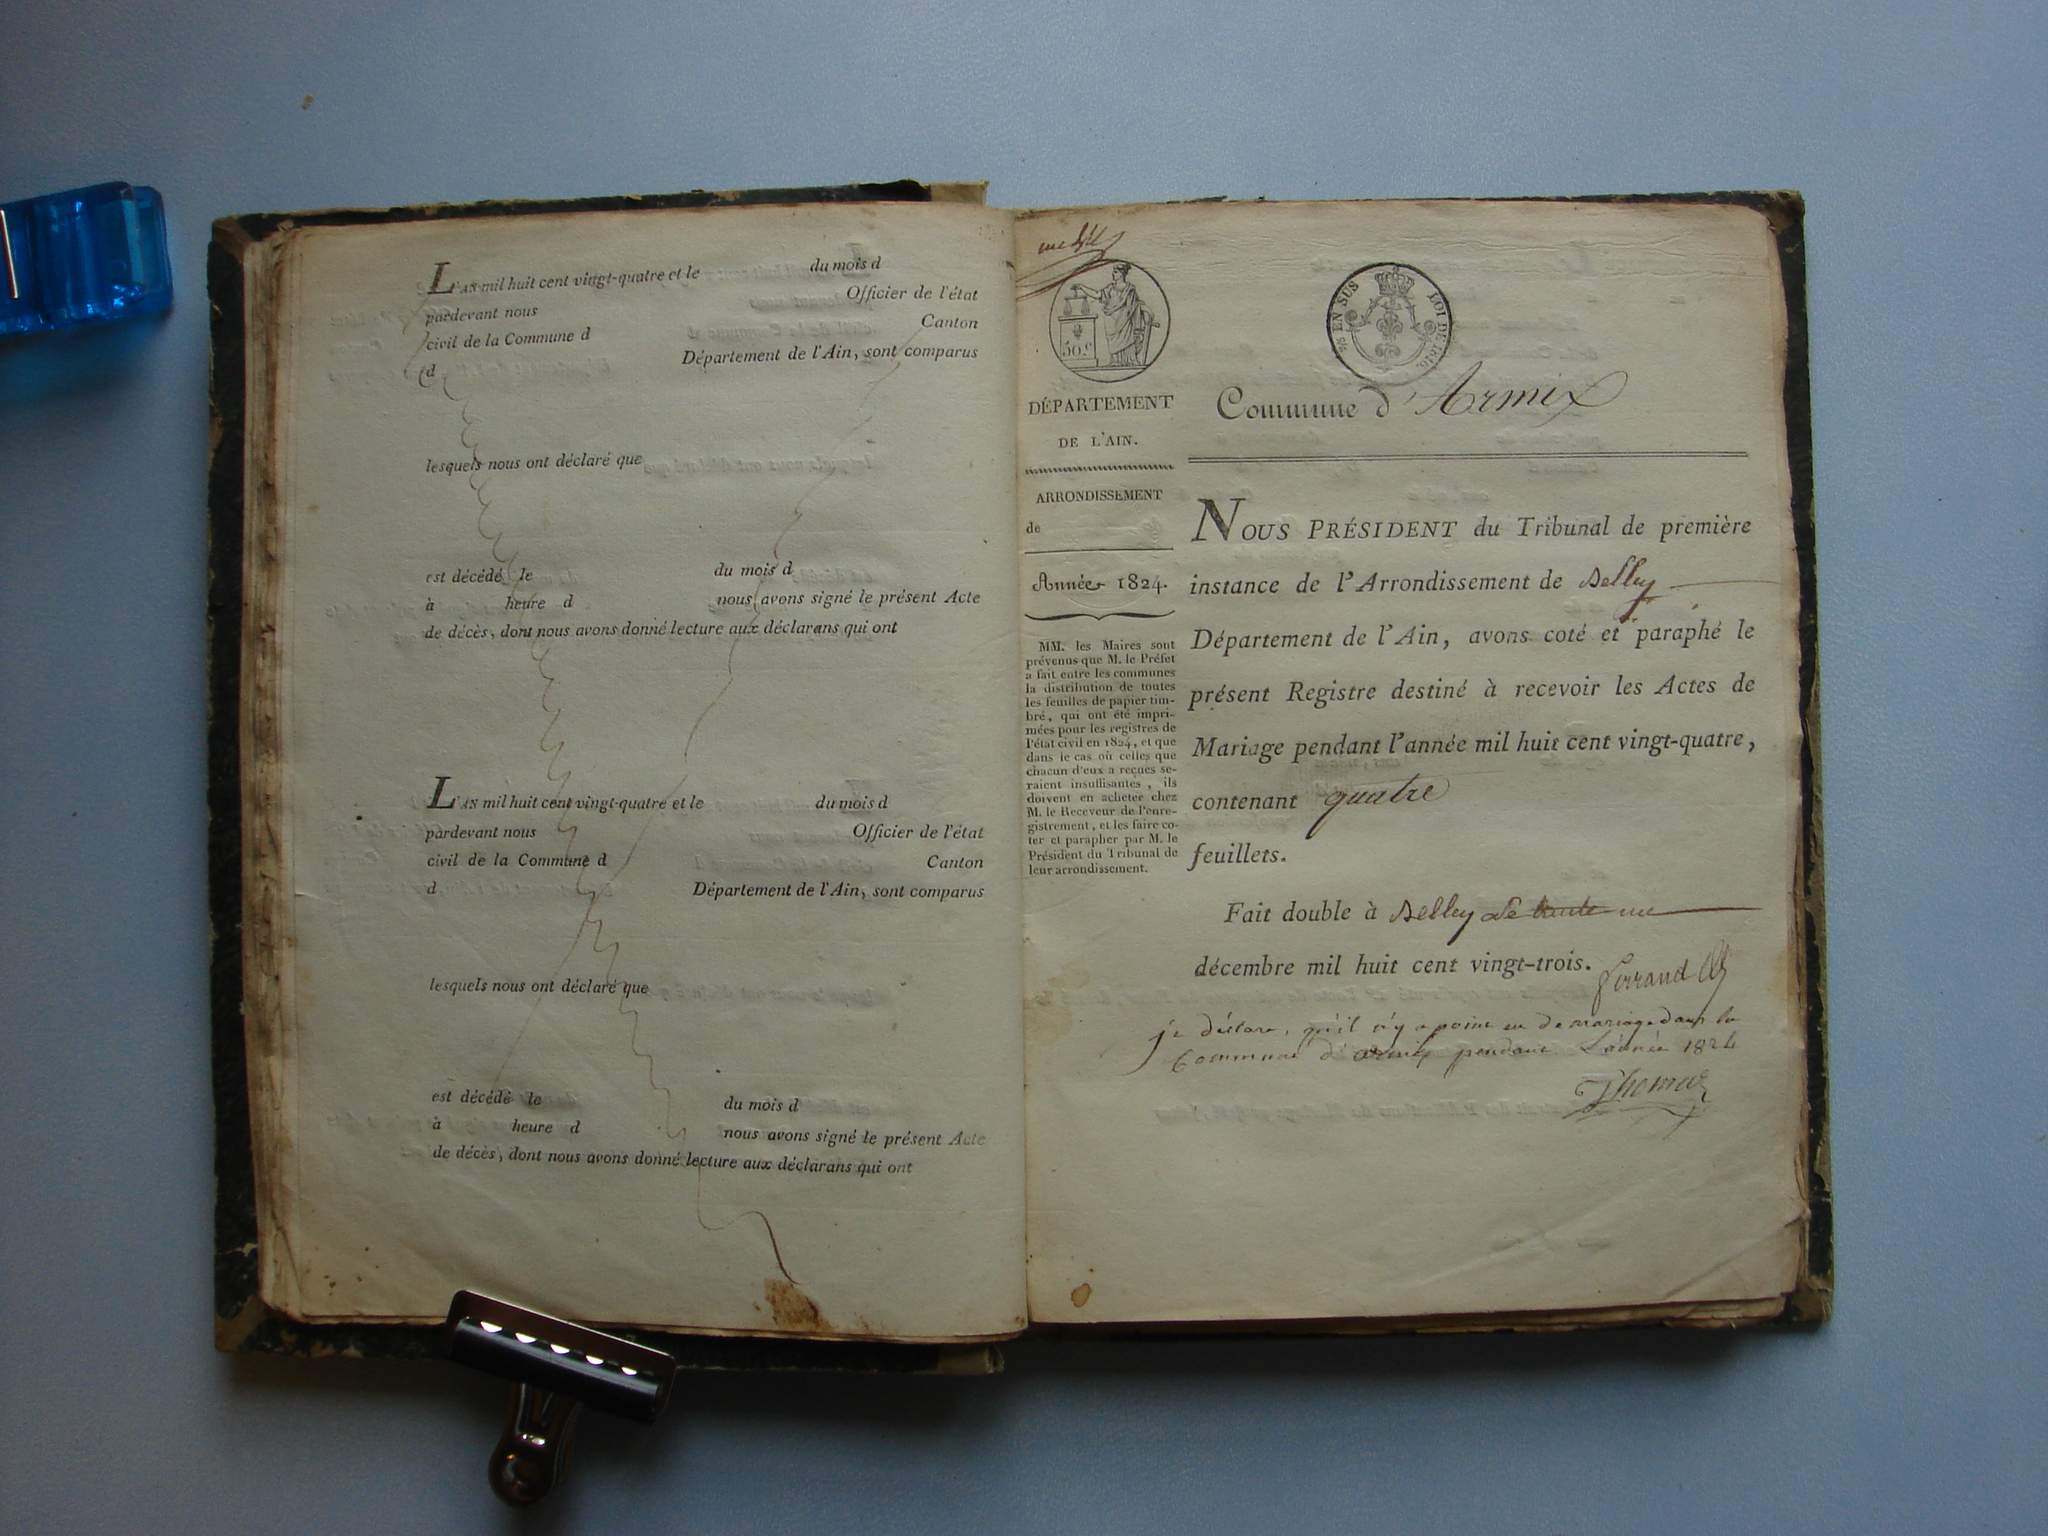 L'AN mil huit cent vingt-quatre et le du mois d
pardevant nous Officier de l'état
civil de la Commune d Canton
d Département de l'Ain, sont comparus
lesquels nous ont déclaré que
est décédé le du mois d
à heure d nous avons signé le présent Acte
de décès, dont nous avons donné lecture aux déclarans qui ont
L'AN mil huit cent vingt-quatre et le du mois d
pardevant nous Officier de l'état
civil de la Commune d Canton
d Département de l'Ain, sont comparus
lesquels nous ont déclaré que
est décédé le du mois d
à heure d nous avons signé le présent Acte
de décès, dont nous avons donné lecture aux déclarans qui ont
50.c
DÉPARTEMENT
DE L'AIN.
ARRONDISSEMENT
de
Année 1824.
MM. les Maires sont
prévenus que M. le Préfet
a fait entre les communes
la distribution de toutes
les feuilles de papier tim-
bré, qui ont été impri-
mées pour les registres de
l'état civil en 1824, et que
dans le cas où celles que
chacun d'eux a reçues se-
raient insuffisantes, ils
doivent en acheter chez
M. le Receveur de l'enre-
gistrement, et les faire co-
ter et parapher par M. le
Président du Tribunal de
leur arrondissement.
EN SUS LOI DE 1816.
Commune d'Armix
NOUS PRÉSIDENT du Tribunal de première
instance de l'Arrondissement de Belley
Département de l'Ain, avons coté et paraphé le
présent Registre destiné à recevoir les Actes de
Mariage pendant l'année mil huit cent vingt-quatre,
contenant quatre
feuillets.
Fait double à Belley le trente un
décembre mil huit cent vingt-trois.
je déclare, qu'il n'y a point eu de mariage dans la
Commune d'armix pendant L'année 1824